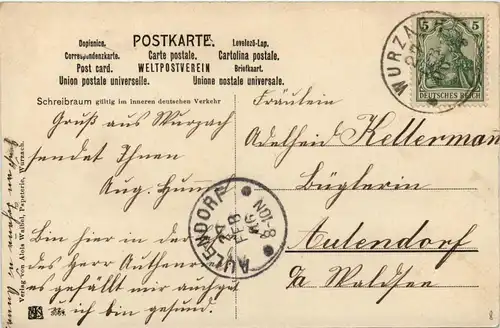 POSTKARTE.
Dopisnice. Levelező-Lap.
Correspondenzkarte. Carte postale. Cartolina postale.
Post card. WELTPOSTVEREIN Briefkaart.
Union postale universelle. Unione postale universale.
Schreibraum gültig im inneren deutschen Verkehr
Gruß aus Wurzach
sendet Ihnen
Aug.
Bin hier in der
des Herr
es gefällt mir auch
ich bin gesund.
Verlag von Alois Waibel, Papeterie, Wurzach.
WURZACH
5 5
DEUTSCHES REICH
AULENDORF
27
FEB
06
8
Fräulein
Adelheid Kellerman
Büglerin
Aulendorf
o/a Waldsee
8